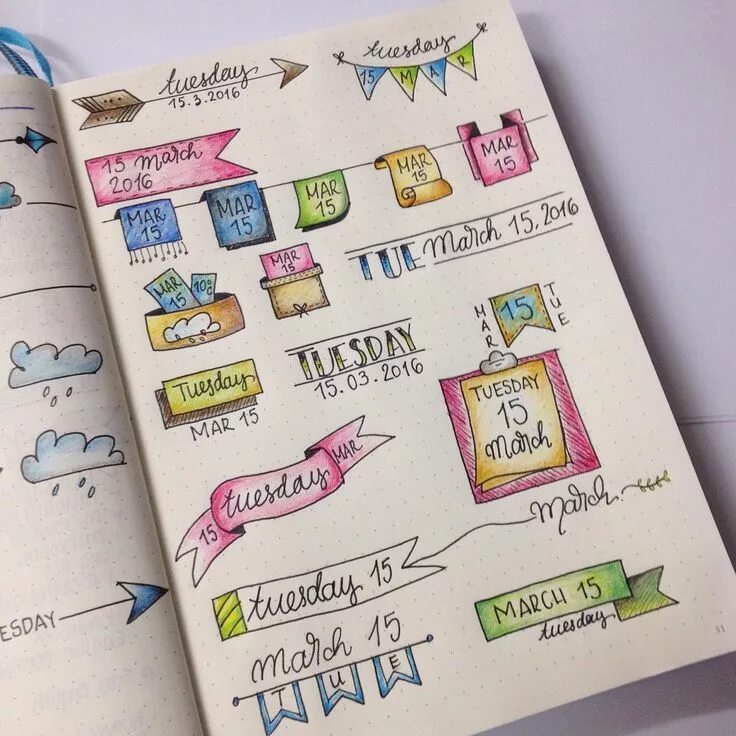 tuesday
15.3.2016
tuesday
15 MAR
15 March
2016
MAR
15
MAR
15
MAR
15
MAR
15
MAR
15
TUE March 15, 2016
MAR
15
MAR
15
TUESDAY
15.03.2016
MAR
15
TUE
Tuesday
MAR 15
TUESDAY
15
March
15 tuesday MAR
march
tuesday 15
MARCH 15
tuesday
march 15
TUE
ESDAY
31